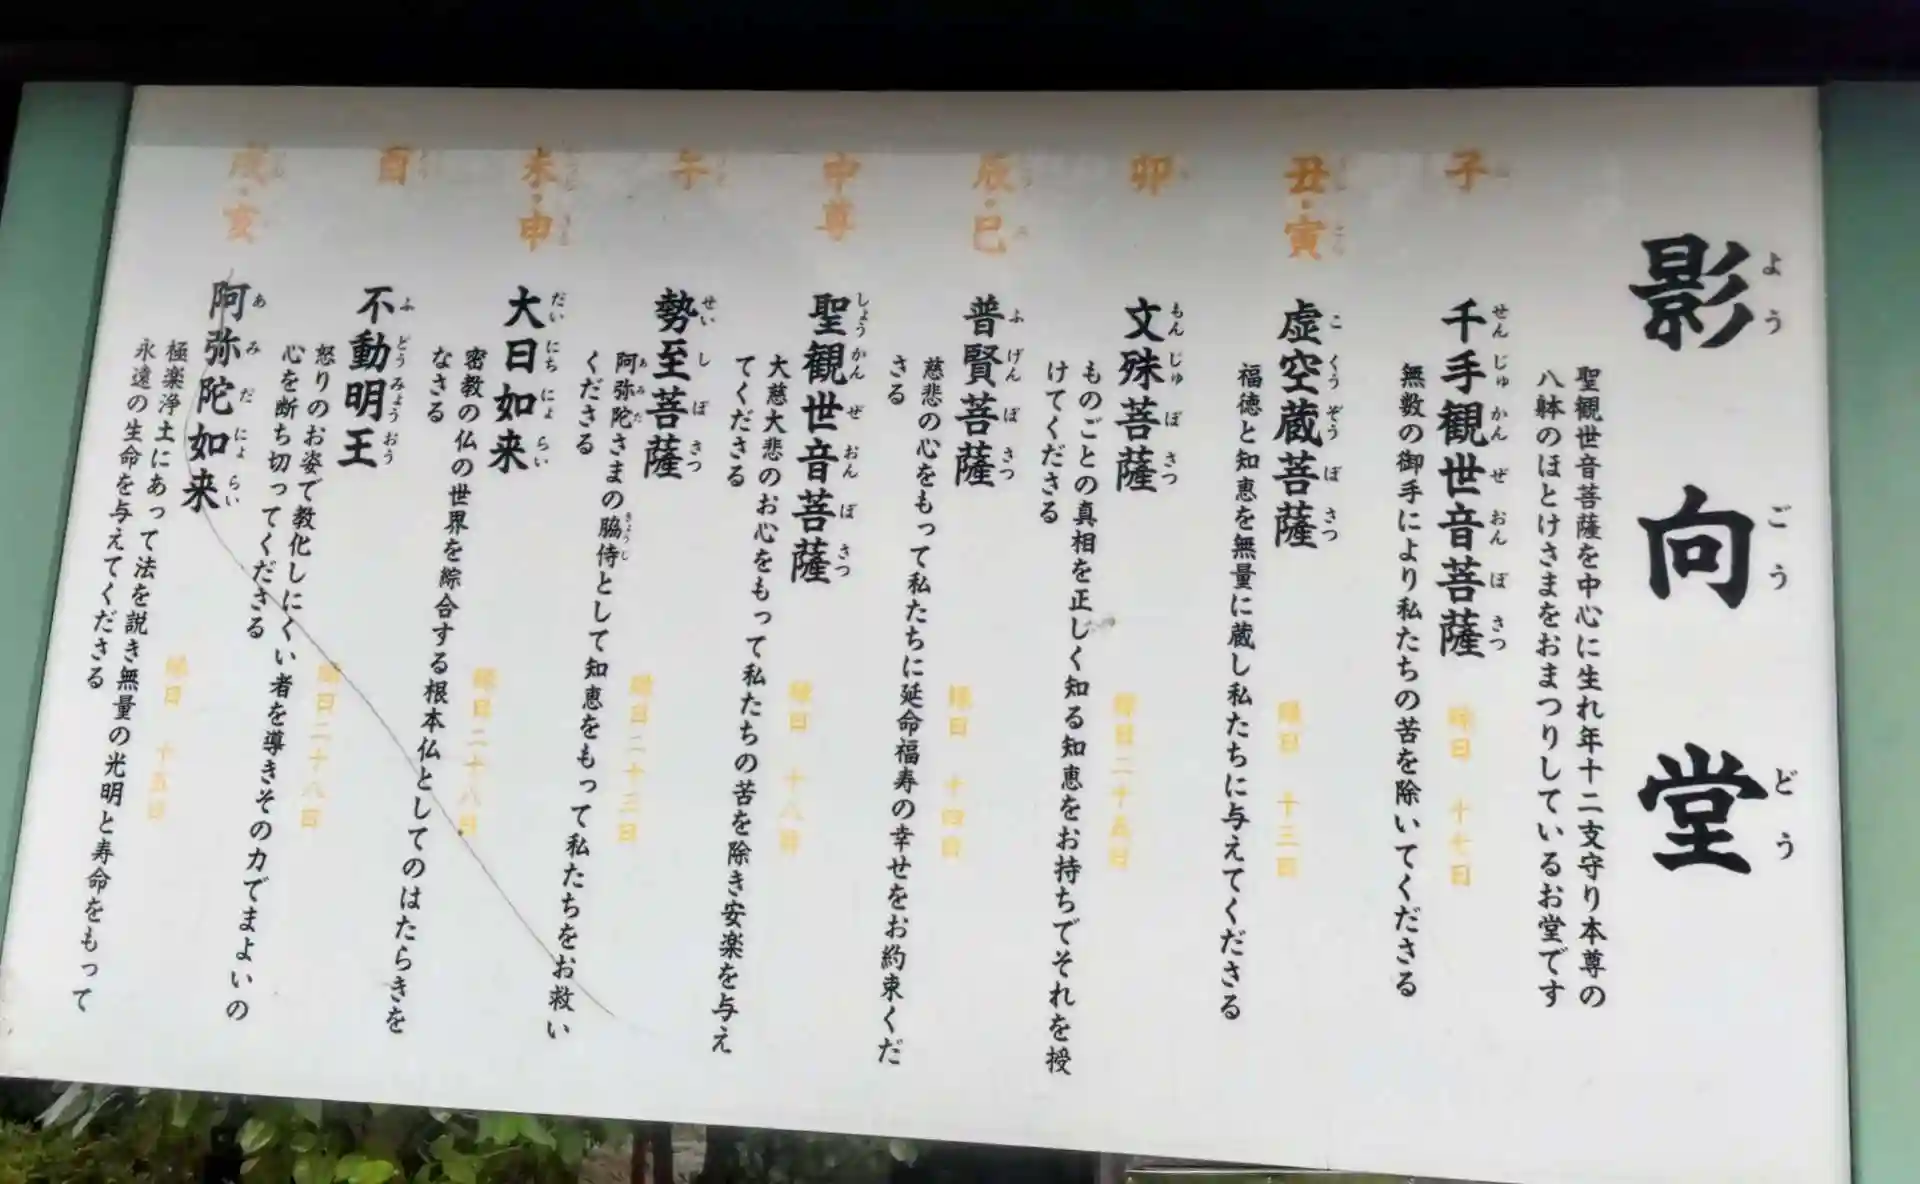 影向堂
ようごうどう
聖観世音菩薩を中心に生れ年十二支守り本尊の
八躰のほとけさまをおまつりしているお堂です
子
千手観世音菩薩
せんじゅかんぜおんぼさつ
縁日 十七日
無数の御手により私たちの苦を除いてくださる
丑・寅
虚空蔵菩薩
こくうぞうぼさつ
縁日 十三日
福徳と知恵を無量に蔵し私たちに与えてくださる
卯
文殊菩薩
もんじゅぼさつ
縁日二十五日
ものごとの真相を正しく知る知恵をお持ちでそれを授
けてくださる
辰・巳
普賢菩薩
ふげんぼさつ
縁日 十四日
慈悲の心をもって私たちに延命福寿の幸せをお約束くだ
さる
中尊
聖観世音菩薩
しょうかんぜおんぼさつ
縁日 十八日
大慈大悲のお心をもって私たちの苦を除き安楽を与え
てくださる
午
勢至菩薩
せいしぼさつ
縁日二十三日
阿弥陀さまの脇侍として知恵をもって私たちをお救い
あみだ
きょうじ
くださる
未・申
大日如来
だいにちにょらい
縁日二十八日
密教の仏の世界を綜合する根本仏としてのはたらきを
なさる
酉
不動明王
ふどうみょうおう
縁日二十八日
怒りのお姿で教化しにくい者を導きその力でまよいの
心を断ち切ってくださる
戌・亥
阿弥陀如来
あみだにょらい
縁日 十五日
極楽浄土にあって法を説き無量の光明と寿命をもって
永遠の生命を与えてくださる